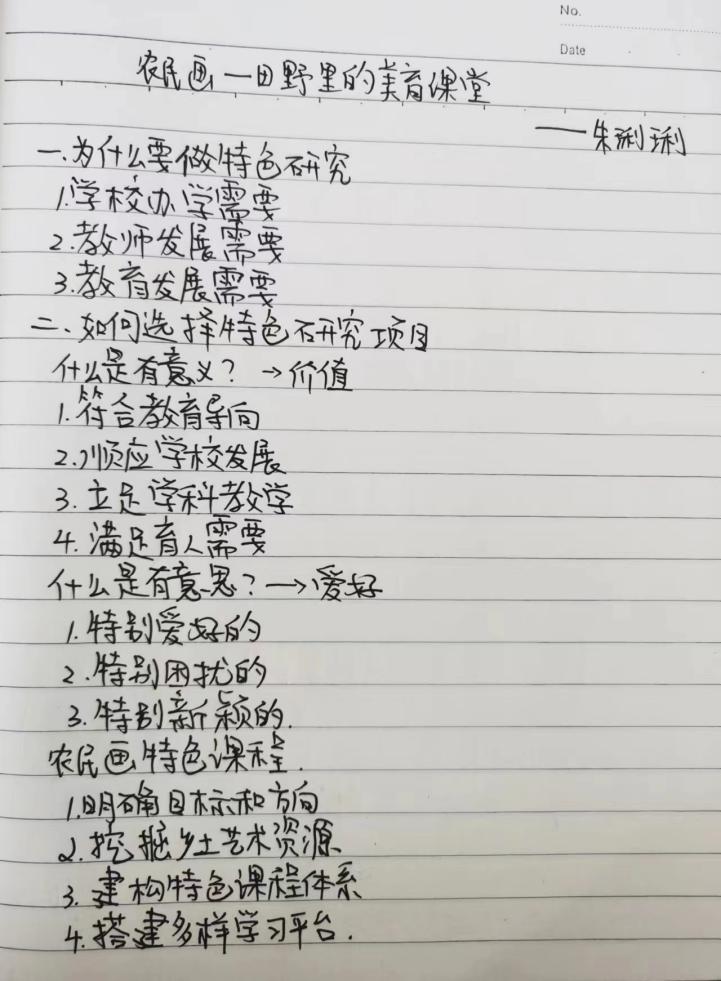 No.
Date
农民画一田野里的美育课堂
——朱琍琍
一.为什么要做特色研究
1.学校办学需要
2.教师发展需要
3.教育发展需要
二、如何选择特色研究项目
什么是有意义?→价值
1.符合教育导向
2.顺应学校发展
3.立足学科教学
4.满足育人需要
什么是有意思?→爱好
1.特别爱好的
2.特别困扰的
3.特别新颖的.
农民画特色课程.
1.明确目标和方向
2.挖掘乡土艺术资源
3.建构特色课程体系
4.搭建多样学习平台.